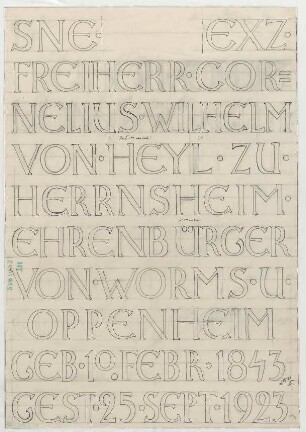 SNE· EXZ·
FREIHERR·COR=
NELIUS·WILHELM
VON·HEYL·ZU·
HERRNSHEIM·
EHRENBÜRGER
VON·WORMS·U·
OPPENHEIM
GEB·10·FEBR·1843
GEST·25·SEPT·1923